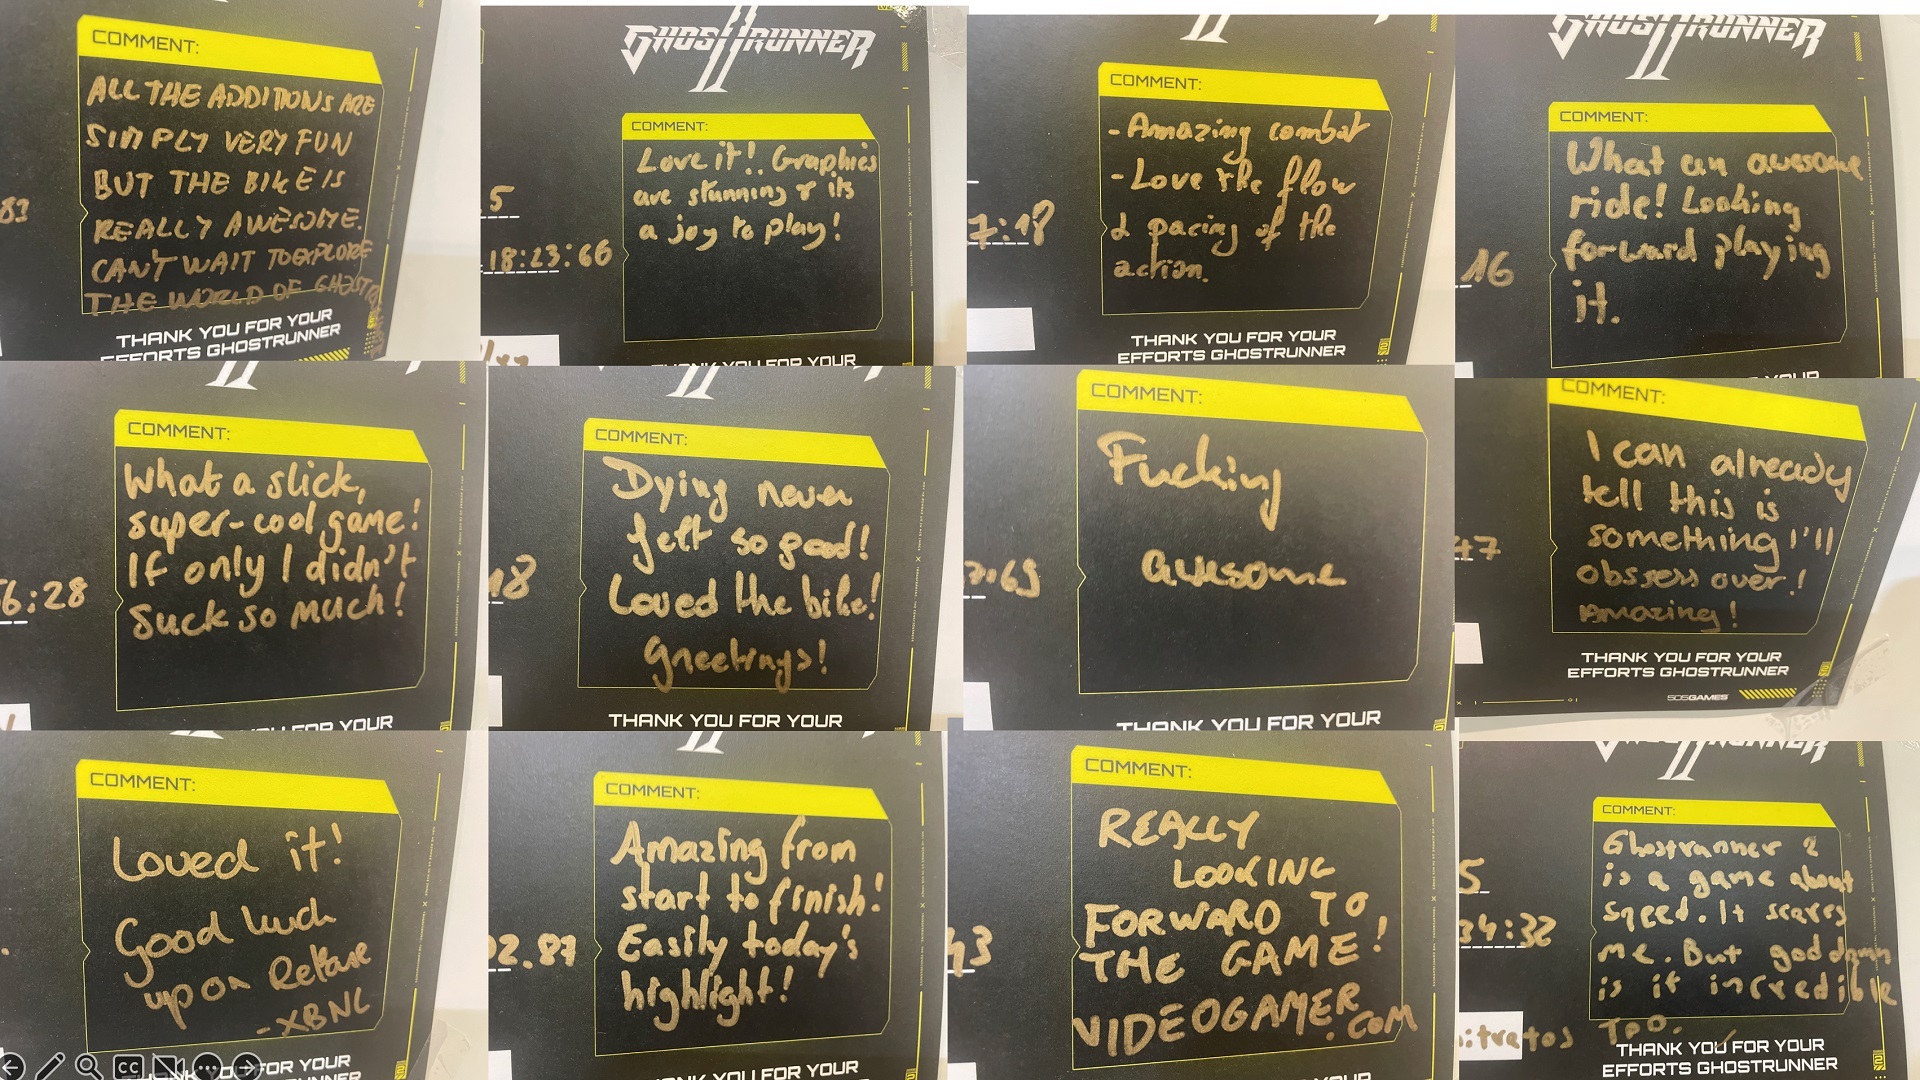 COMMENT:
ALL THE ADDITIONS ARE
SIMPLY VERY FUN
BUT THE BIKE IS
REALLY AWESOME.
CAN'T WAIT TO EXPLORE
THE WORLD OF GHOSTR
83
THANK YOU FOR YOUR
EFFORTS GHOSTRUNNER
GHOSTRUNNER
II
COMMENT:
Love it!. Graphics
are stunning & its
a joy to play!
5
18:23:66
THANK YOU FOR YOUR
II
COMMENT:
- Amazing combat
- Love the flow
& pacing of the
action.
7:18
THANK YOU FOR YOUR
EFFORTS GHOSTRUNNER
GHOSTRUNNER
II
COMMENT:
What an awesome
ride! Looking
forward playing
it.
16
YOUR
II
COMMENT:
What a slick,
super-cool game!
If only I didn't
suck so much!
6:28
FOR YOUR
II
COMMENT:
Dying never
felt so good!
Loved the bike!
Greetings!
18
THANK YOU FOR YOUR
COMMENT:
Fucking
awesome
7:69
THANK YOU FOR YOUR
COMMENT:
I can already
tell this is
something I'll
obssess over!
Amazing!
47
THANK YOU FOR YOUR
EFFORTS GHOSTRUNNER
505GAMES
COMMENT:
Loved it!
Good luck
upon Release
- XBNL
CC
FOR YOUR
II
COMMENT:
Amazing from
start to finish!
Easily today's
highlight!
02.87
THANK YOU FOR YOUR
COMMENT:
REALLY
LOOKING
FORWARD TO
THE GAME!
VIDEOGAMER.COM
43
GHOSTRUNNER
II
COMMENT:
Ghostrunner 2
is a game about
speed. It scares
me. But goddamn
is it incredible
too.
5
34:32
itratos
THANK YOU FOR YOUR
EFFORTS GHOSTRUNNER